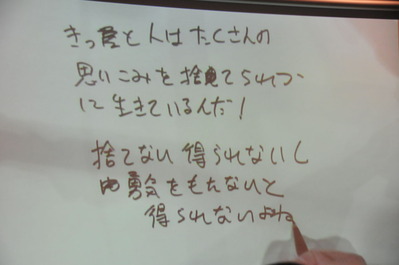 きっと人はたくさんの
思いこみを捨てられず
に生きているんだ！
捨てない 得られないし
勇気をもたないと
得られないよね